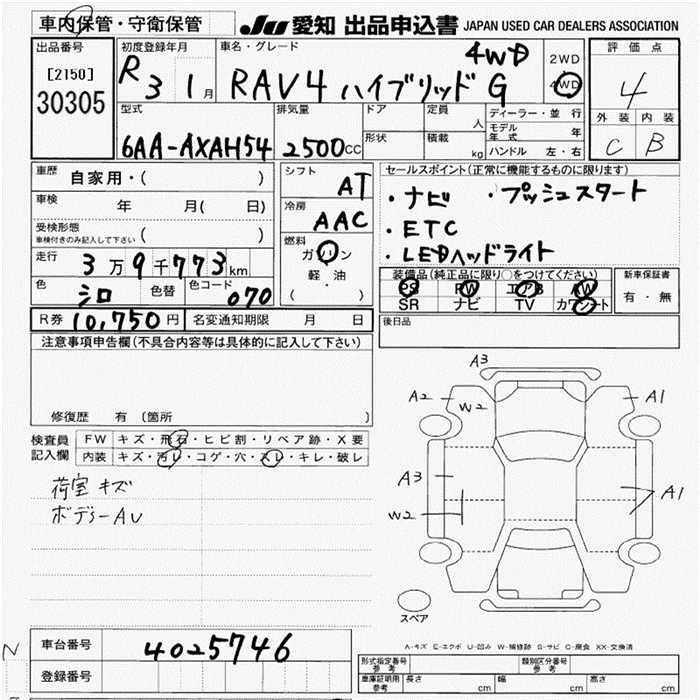 車内保管・守衛保管
JU 愛知 出品申込書 JAPAN USED CAR DEALERS ASSOCIATION
出品番号 [2150] 30305
初度登録年月 R 3 1月
車名・グレード RAV4 ハイブリッド G 4WD
2WD
4WD
評価点 4
外装 内装
C B
型式 6AA-AXAH54
排気量 2500cc
ドア
形状
定員 人
積載 kg
ディーラー・並行
モデル年式 年
ハンドル 左・右
車歴 自家用・( )
車検 年 月( 日)
受検形態 ( )
車検付きのみ記入して下さい
走行 3万9千773km
色 シロ 色替 色コード 070
シフト AT
冷房 AAC
燃料 ガソリン
軽・油
( ・ )
セールスポイント(正常に機能するものに限ります)
・ナビ ・プッシュスタート
・ETC
・LEDヘッドライト
装備品(純正品に限り○をつけてください)
PS PW エアB AW
SR ナビ TV カワシート
新車保証書
有・無
R券 10,750円 名変通知期限 月 日
後日品
注意事項申告欄(不具合内容等は具体的に記入して下さい)
修復歴 有 (箇所 )
検査員記入欄
FW キズ・飛石・ヒビ割・リペア跡・X要
内装 キズ・汚レ・コゲ・穴・スレ・キレ・破レ
荷室キズ
ボデーAU
A3
A2 W2 A1
A3
W2 A1
スペア
A-キズ E-エクボ U-凹み W-補修跡 S-サビ C-腐食 XX-交換済
車台番号 4025746
登録番号
N
型式指定番号 参考
類別区分番号 参考
車庫証明 参考 長さ cm 幅 cm 高さ cm